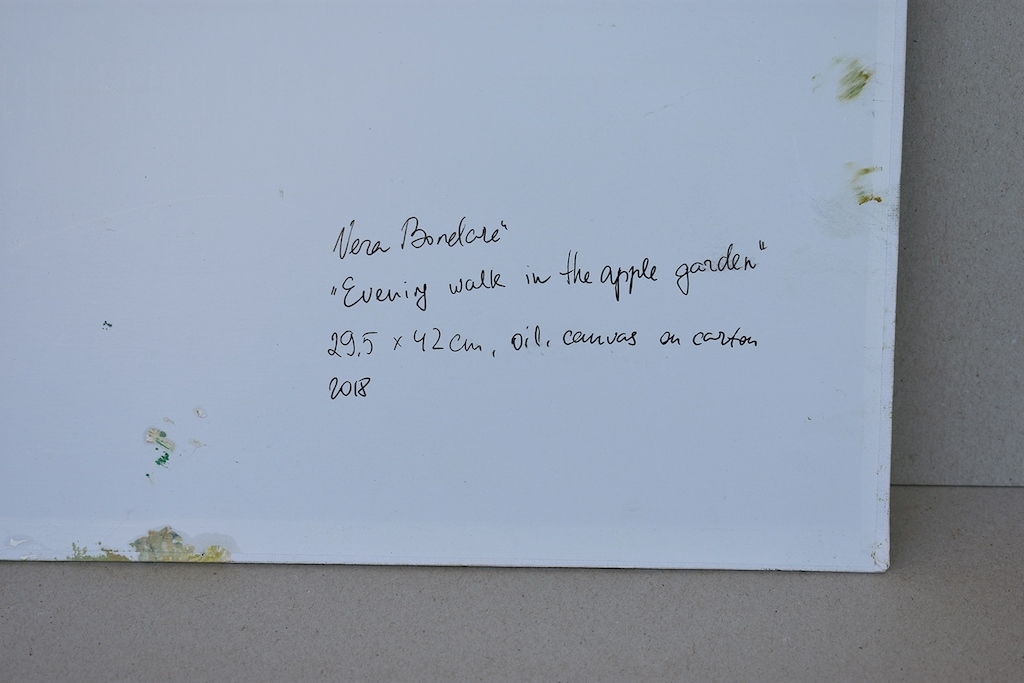 Vera Bondare"
"Evening walk in the apple garden"
29,5 x 42 cm, oil, canvas on carton
2018